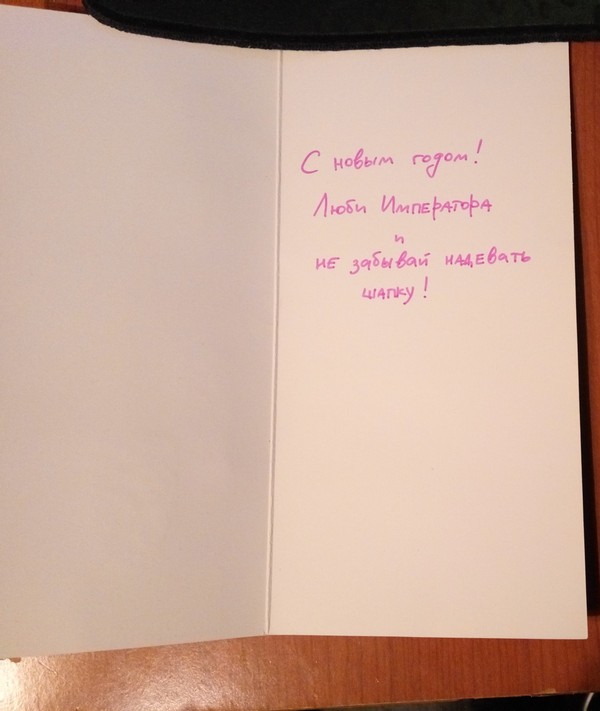 С новым годом!
Люби Императора
и
не забывай надевать
шапку!